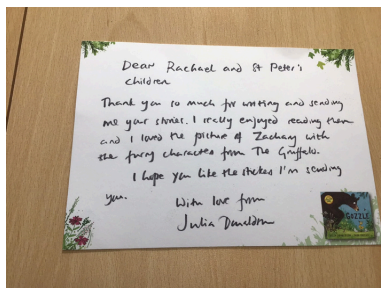 Dear Rachael and St Peter's
children
Thank you so much for writing and sending
me your stories. I really enjoyed reading them
and I loved the picture of Zachary with
the furry character from The Gruffalo.
I hope you like the stickers I'm sending
you.
With love from
Julia Donaldson
GOZZLE